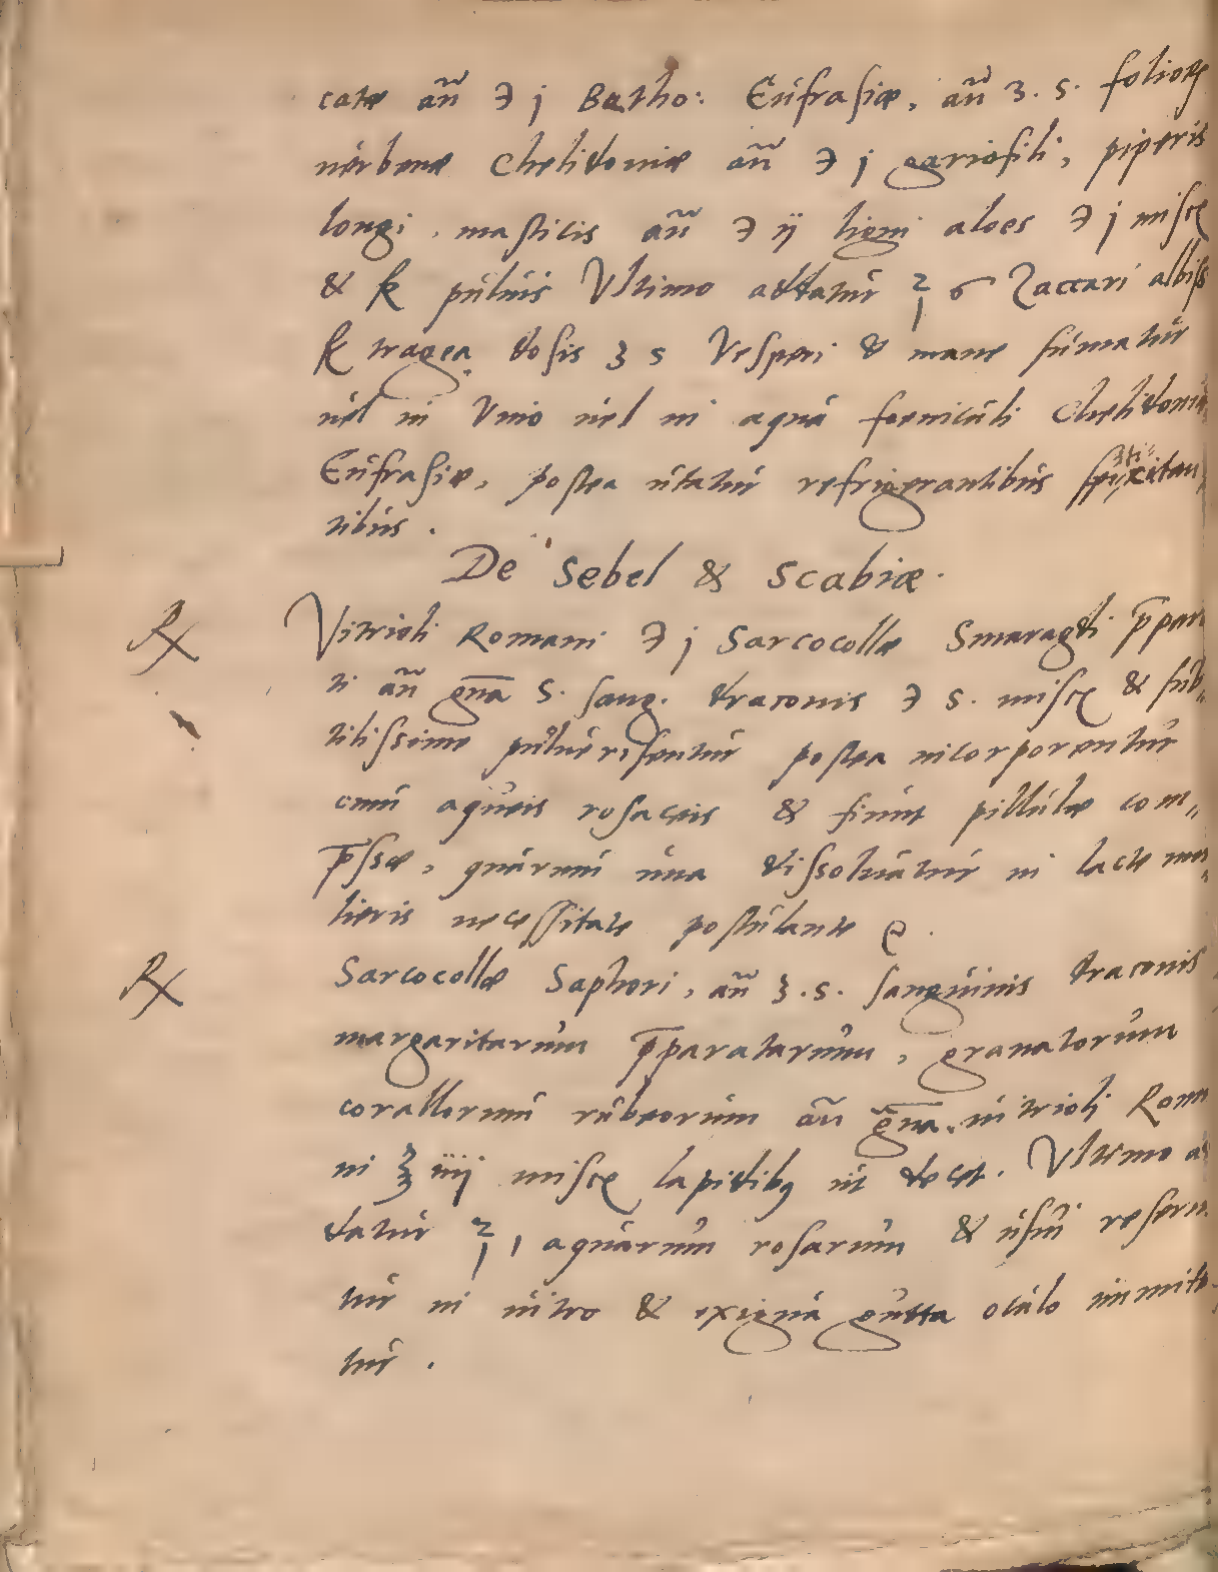 catæ añ ℈ j Betho: Eufrasiæ, añ ʒ. s. foliorꝝ
uerbenæ Chelidoniæ añ ℈ j gariofili, piperis
longi, masticis añ ℈ ij ligni aloes ℈ j misce
& puluis Ultimo addatur ℥ 6 Zaccari albiss
tragea dosis ʒ s Vesperi & mane sumatur
uel in Vino uel in aqua foeniculi Chelidoniæ
Eufrasiæ, postea utatur refrigerantibus
tibus.
De Sebel & Scabiæ.
℞ Vitrioli Romani ℈ j Sarcocollæ Smaragdi p̄para
ti añ gna s. sang. draconis ℈ s. misce & sub„
tilissime puluerisentur postea incorporentur
cum aqueis rosaceis & fiunt pillulæ com„
p̄ssæ, quarum una dissoluatur in lacte mu„
lieris necessitate postulante
℞ Sarcocollæ Saphori, añ ʒ. s. sanguinis draconis
margaritarum p̄paratarum, granatorum
corallorum rubeorum añ gna. uitrioli Roma
ni ʒ iiij misce lapidibꝰ ut decet. Ultimo ad
datur ℥ 1 aquarum rosarum & usui reserue
tur in uitro & exigua gutta oculo immitta
tur.